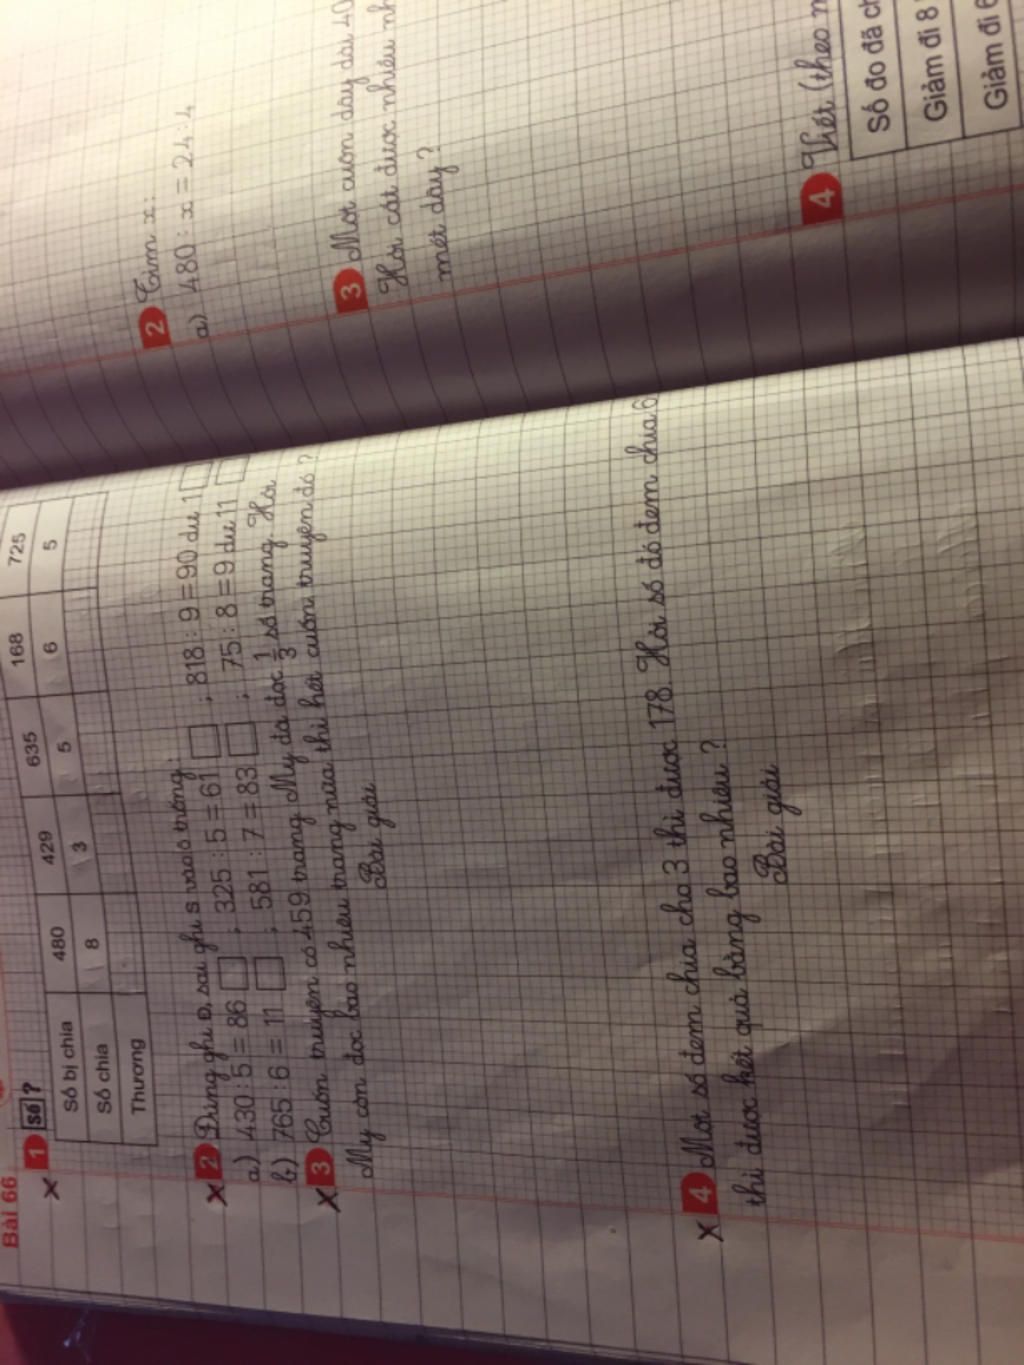 Bài 66
1 Số ?
Số bị chia 480 429 635 168 725
Số chia 8 3 5 6 5
Thương
2 Đúng ghi Đ, sai ghi S vào ô trống:
a) 430 : 5 = 86 ; 325 : 5 = 61 ; 818 : 9 = 90 dư 1
b) 765 : 6 = 11 ; 581 : 7 = 83 ; 75 : 8 = 9 dư 11
3 Cuốn truyện có 459 trang. My đã đọc 1/3 số trang. Hỏi
My còn đọc bao nhiêu trang nữa thì hết cuốn truyện đó ?
Bài giải
4 Một số đem chia cho 3 thì được 178. Hỏi số đó đem chia 6
thì được kết quả bằng bao nhiêu ?
Bài giải
2 Tìm x:
a) 480 : x = 24 : 4
3 Một cuộn dây dài 40
Hỏi cắt được nhiêu
mét dây ?
4 Viết (theo
Số đo đã
Giảm đi 8
Giảm đi 6